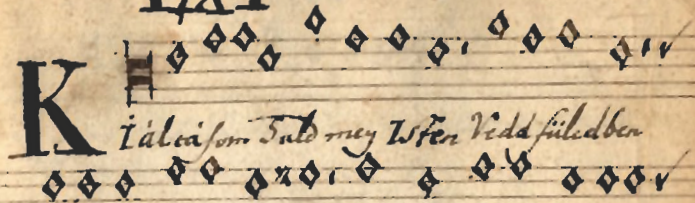 KIáltásom Tudd meg Isten Vedd füledben